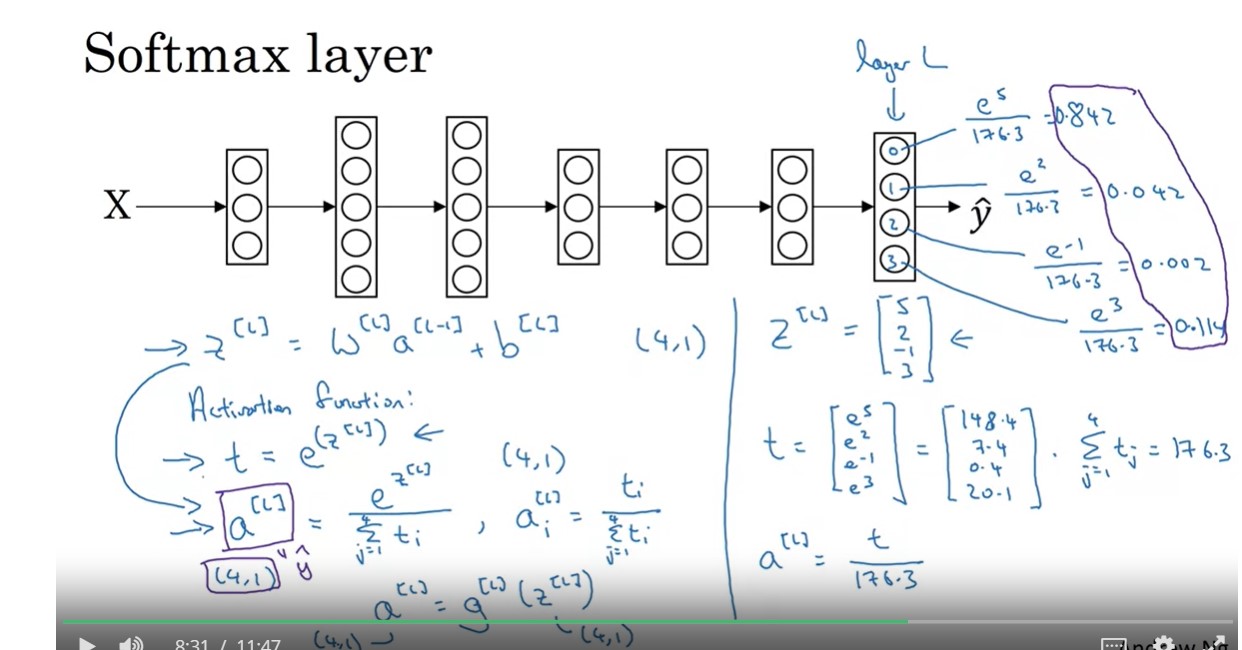 Softmax layer
layer L
X
ŷ
0
1
2
3
e^5 / 176.3 = 0.842
e^2 / 176.3 = 0.042
e^-1 / 176.3 = 0.002
e^3 / 176.3 = 0.114
→ z^[L] = W^[L] a^[L-1] + b^[L] (4,1)
Activation function:
→ t = e^(z^[L]) ←
(4,1)
→ a^[L] = e^z^[L] / Σ_{j=1}^4 t_i , a_i^[L] = t_i / Σ_{j=1}^4 t_i
(4,1) " ŷ
a^[L] = g^[L] (z^[L])
(4,1) (4,1)
z^[L] = [5 2 -1 3] ←
t = [e^5 e^2 e^-1 e^3] = [148.4 7.4 0.4 20.1] . Σ_{j=1}^4 t_j = 176.3
a^[L] = t / 176.3
8:31 / 11:47
Ng